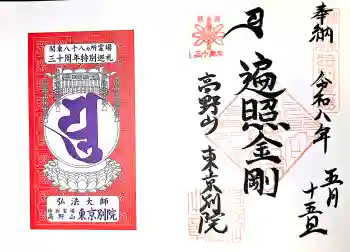 関東八十八ヵ所霊場
三十周年特別巡礼
弘法大師
高野山 東京別院
奉納 令和八年
五月
十五日
遍照金剛
高野山 東京別院